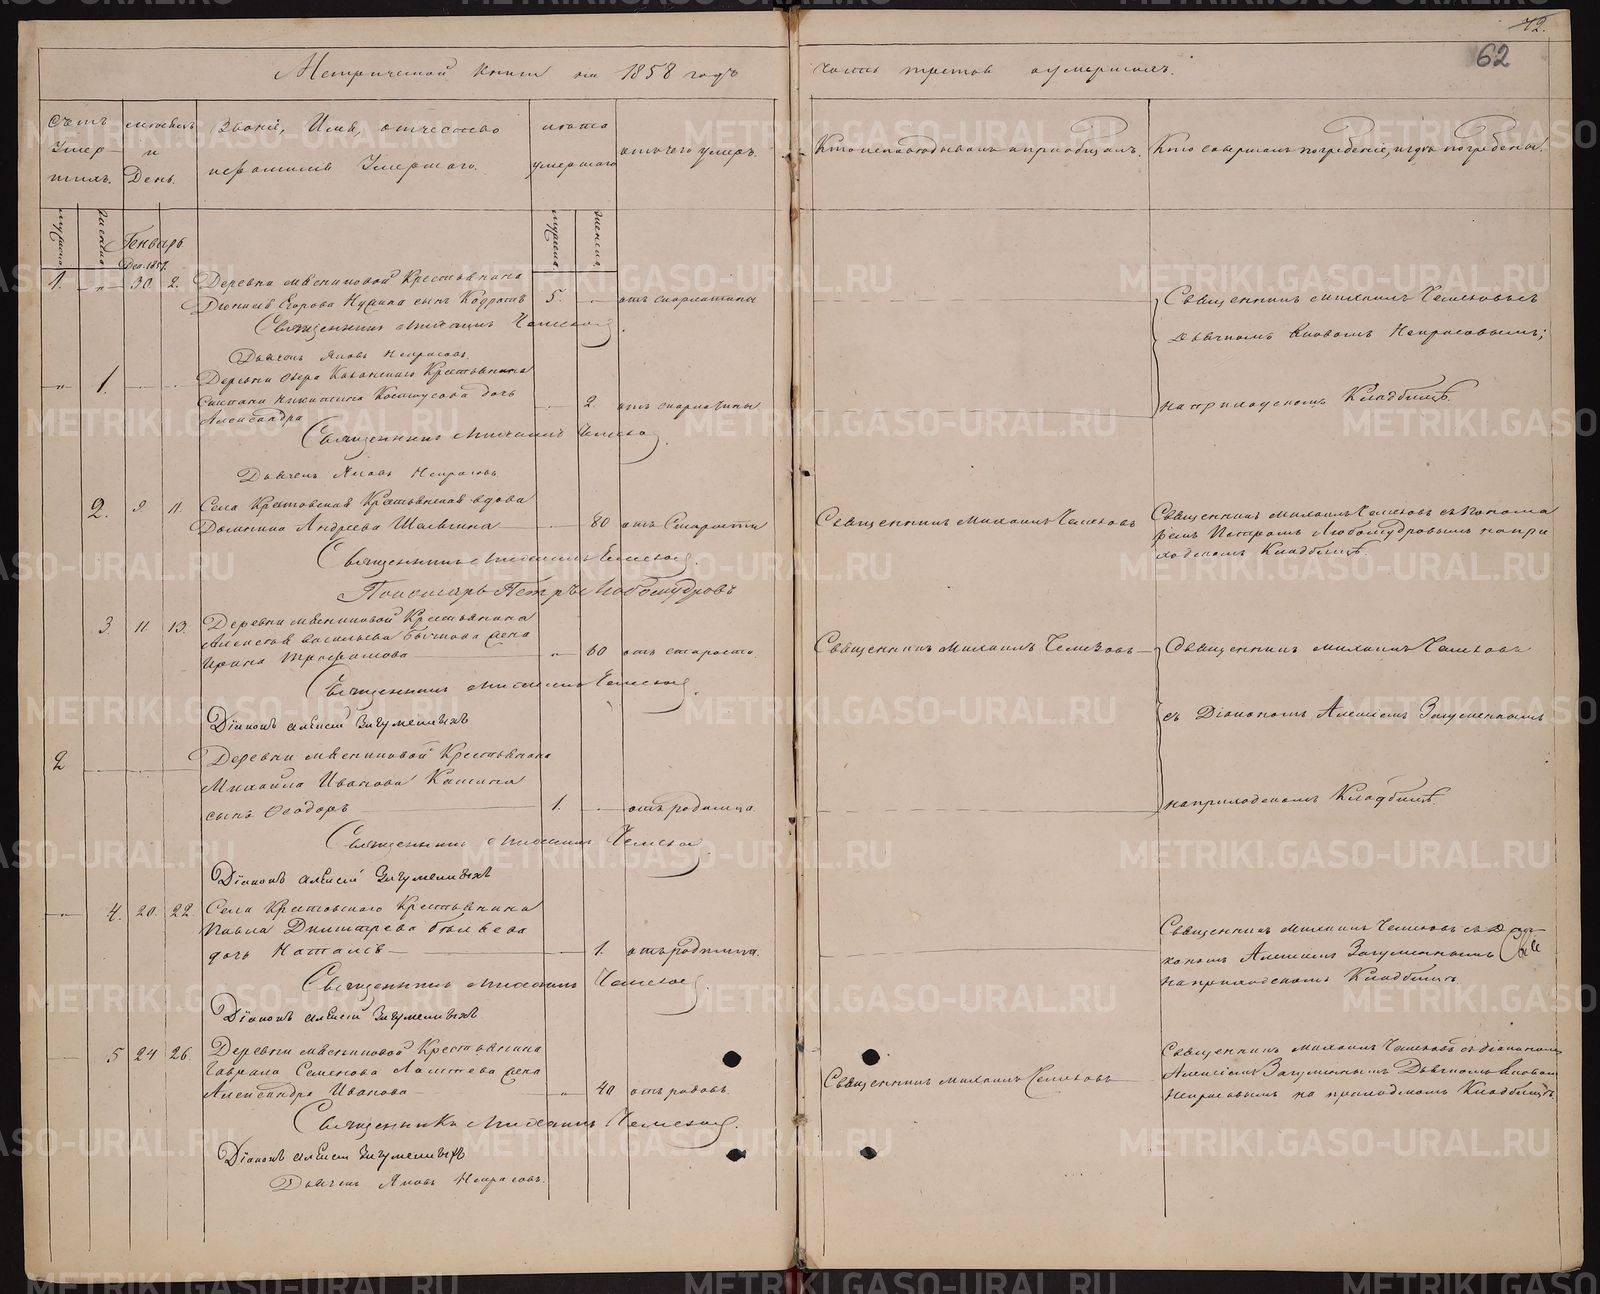 72.
62
Метрической книги на 1858 годъ
часть третья о умершихъ.
Счетъ
Умер
шихъ.
мѣсяцъ
и
День.
Званіе, Имя, отчество
и фамилія Умершаго.
лѣта
умершаго
отъ чего умеръ.
Кто исповѣдывалъ и приобщалъ.
Кто совершалъ погребеніе, и гдѣ погребены.
мужска
женска
Генварь
Дек. 1857.
мужска
женска
1. " 30. 2. Деревни Мясниковой Крестьянина
Дионисія Егорова сынъ Кодратъ 5. отъ скарлатины
Священникъ Михаилъ Чемезовъ
Дьячекъ Яковъ Некрасовъ.
Священникъ Михаилъ Чемезовъ съ
Дьячкомъ Яковомъ Некрасовымъ;
на приходскомъ Кладбищѣ.
" 1. Деревни Озера Крестьянина
Никитина дочь
Александра 2. отъ скарлатины
Священникъ Михаилъ Чемезовъ
Дьячекъ Яковъ Некрасовъ
2. 9. 11. Села Крестьянская вдова
Домнина Андреева 80 отъ Старости
Священникъ Михаилъ Чемезовъ.
Пономарь Петръ Любомудровъ
Священникъ Михаилъ Чемезовъ
Священникъ Михаилъ Чемезовъ съ Понома
ремъ Петромъ Любомудровымъ на при
ходскомъ Кладбищѣ.
3. 11. 13. Деревни Мясниковой Крестьянина
Алексѣя Васильева жена
Ирина Трофимова " 60 отъ старости.
Священникъ Михаилъ Чемезовъ.
Діаконъ Алексій Загуменныхъ
Священникъ Михаилъ Чемезовъ
Священникъ Михаилъ Чемезовъ
съ Діакономъ Алексіемъ Загуменнымъ
на приходскомъ Кладбищѣ.
2 Деревни Мясниковой Крестьянина
Михаила Иванова
сынъ Ѳеодоръ 1. отъ родимца.
Священникъ Михаилъ Чемезовъ.
Діаконъ Алексій Загуменныхъ
" 4. 20. 22. Села Крестьянина
Павла Димитрева
дочь Наталія 1. отъ родимца.
Священникъ Михаилъ Чемезовъ
Діаконъ Алексій Загуменныхъ
Священникъ Михаилъ Чемезовъ съ Діа-
кономъ Алексіемъ Загуменнымъ
на приходскомъ Кладбищѣ.
5 24 26. Деревни Мясниковой Крестьянина
Гаврила Семенова жена
Александра Иванова " 40 отъ родовъ.
Священникъ Михаилъ Чемезовъ.
Діаконъ Алексій Загуменныхъ
Дьячекъ Яковъ Некрасовъ.
Священникъ Михаилъ Чемезовъ
Священникъ Михаилъ Чемезовъ съ діакономъ
Алексіемъ Загуменнымъ Дьячкомъ Яковомъ
Некрасовымъ на приходскомъ Кладбищѣ
METRIKI.GASO-URAL.RU